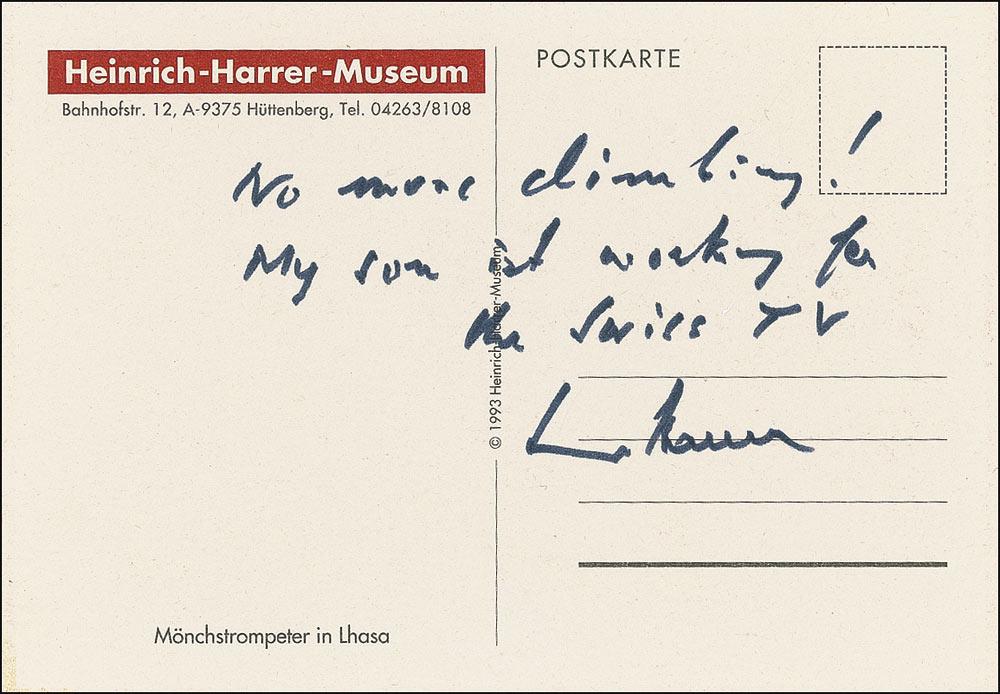 Heinrich-Harrer-Museum
Bahnhofstr. 12, A-9375 Hüttenberg, Tel. 04263/8108
POSTKARTE
No more climbing!
My son ist working for
the Swiss TV
Harrer
© 1993 Heinrich-Harrer-Museum
Mönchstrompeter in Lhasa